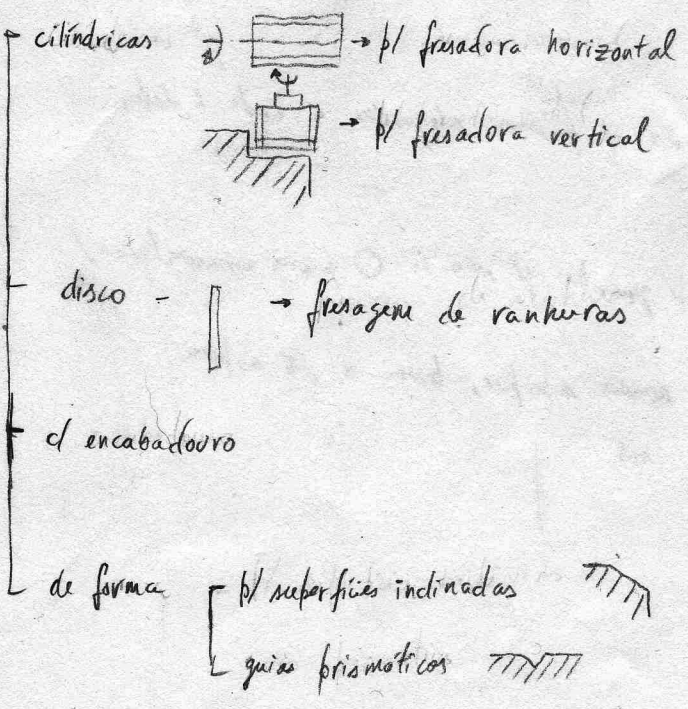 cilíndricas → p/ fresadora horizontal
→ p/ fresadora vertical
disco - → fresagem de ranhuras
c/ encabadouro
de forma p/ superfícies inclinadas
guias prismáticos